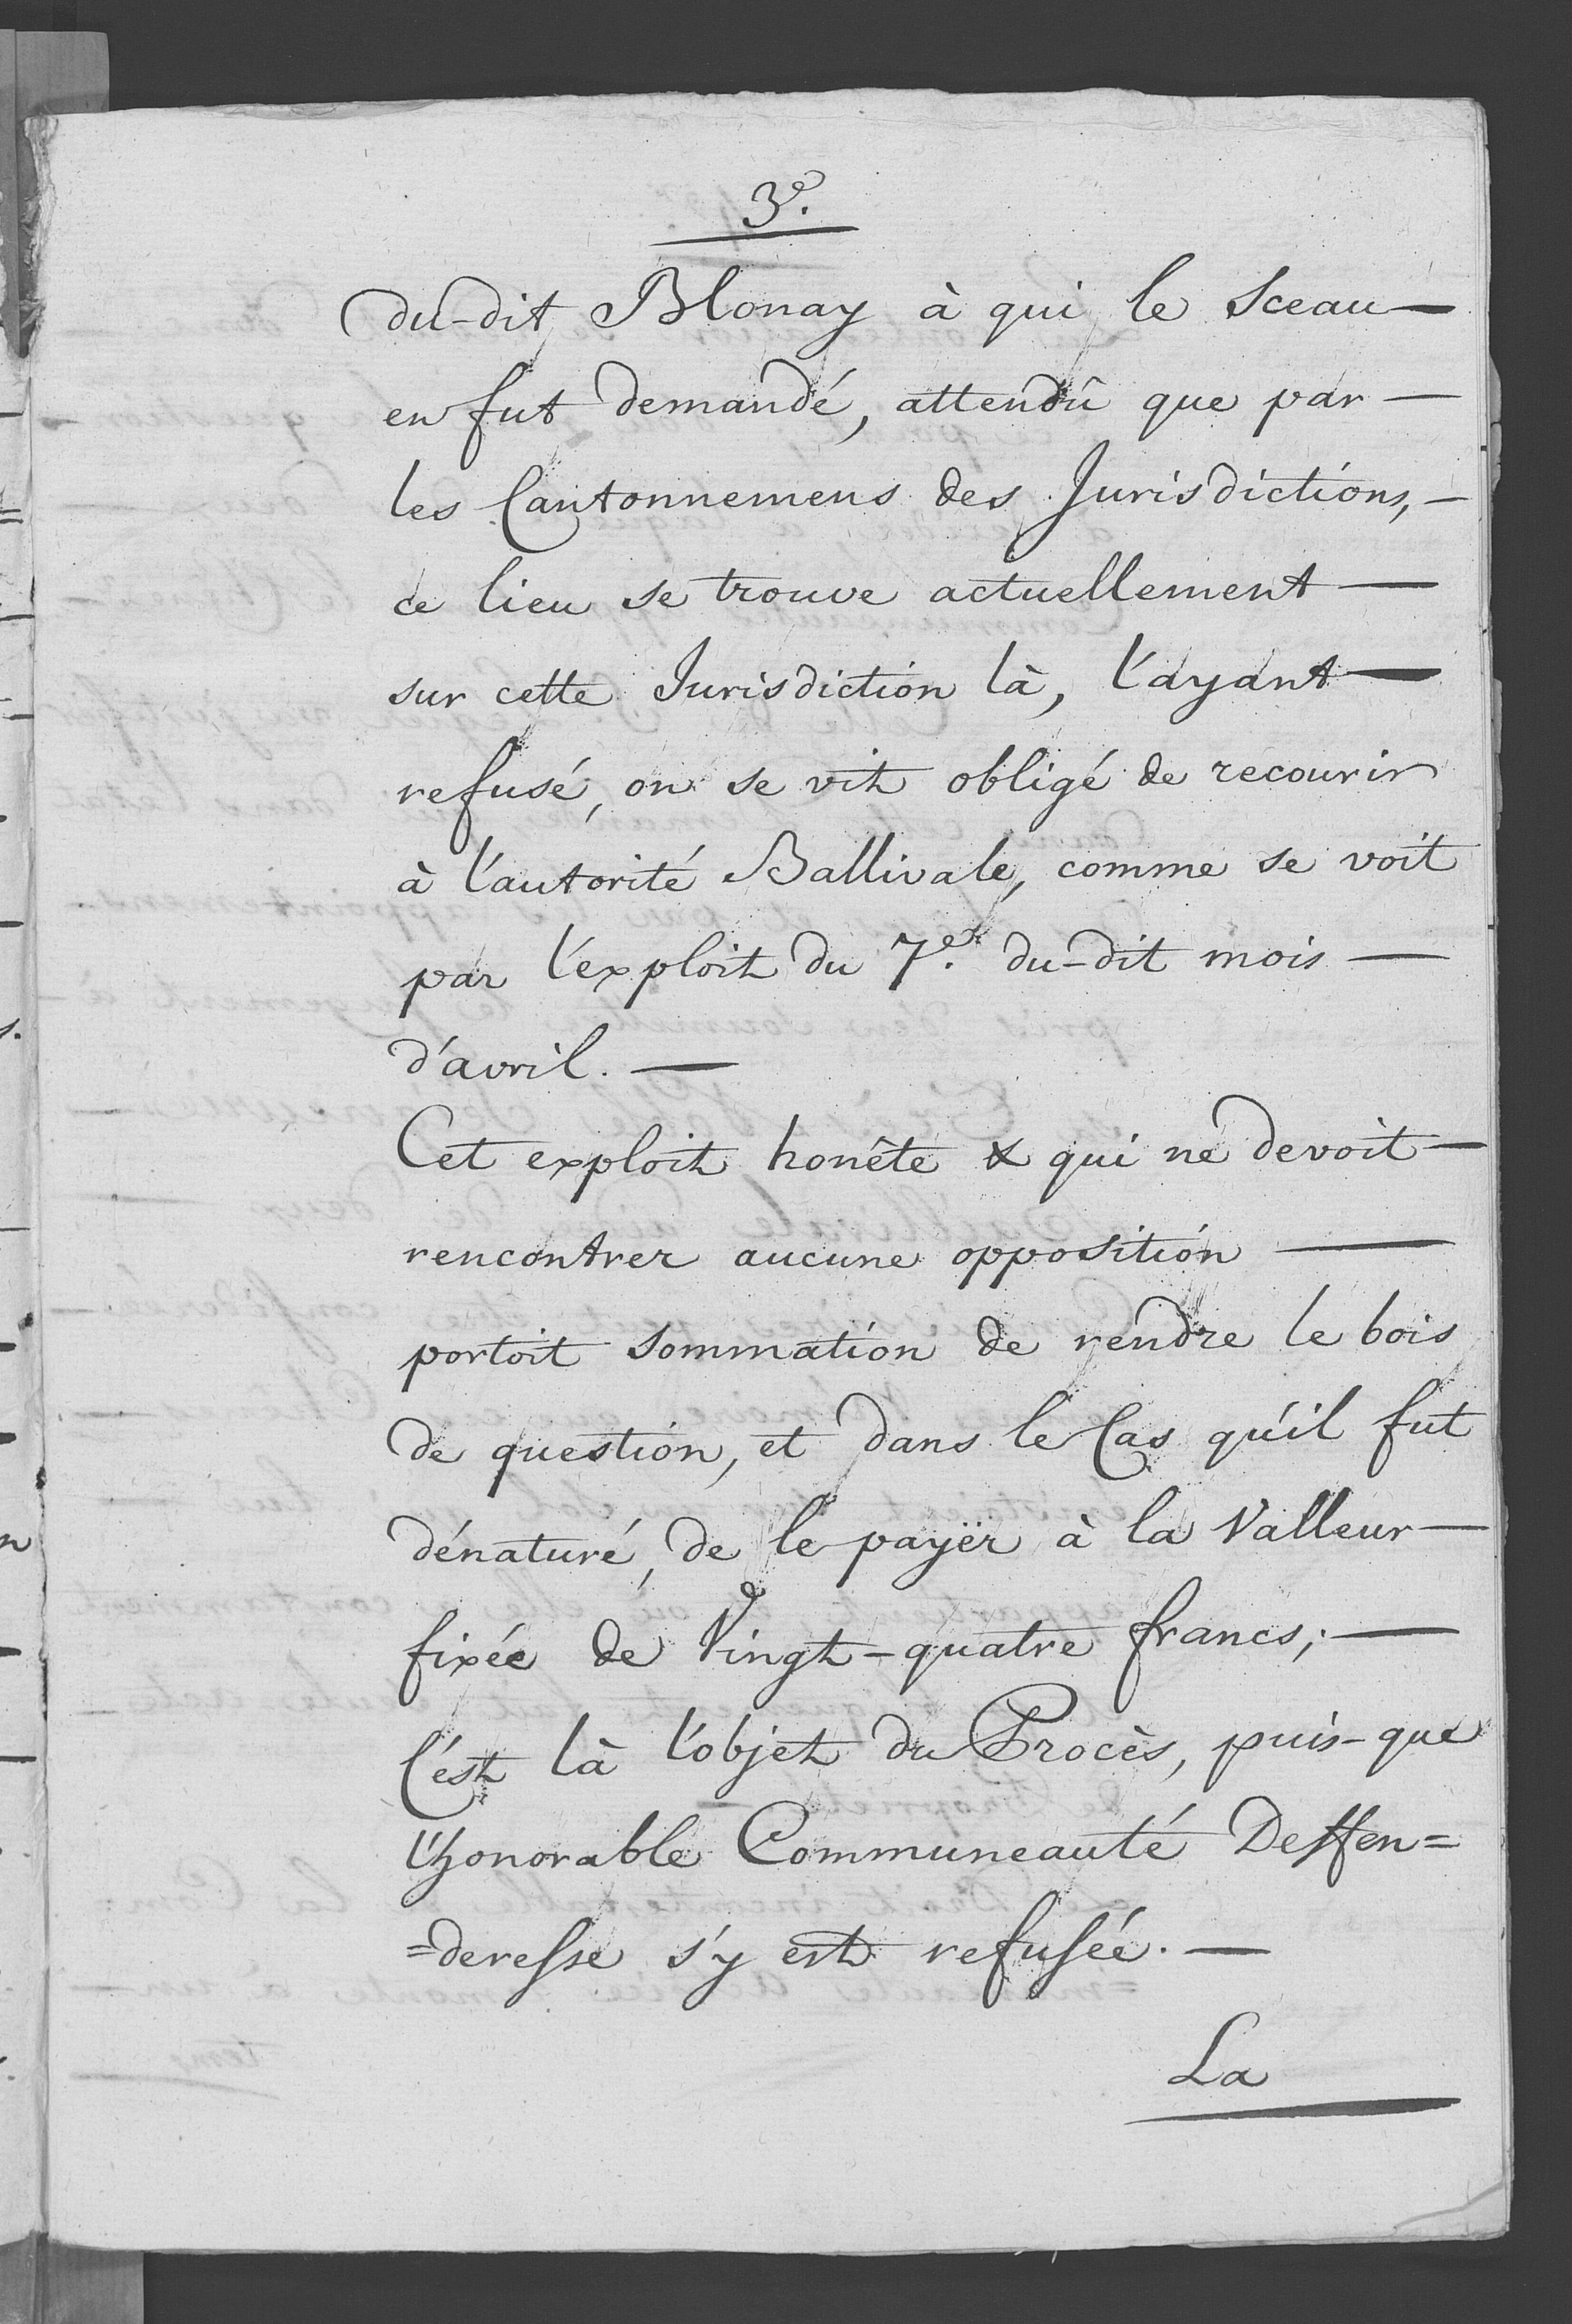 3e.
du-dit Blonay à qui le Sceau —
en fut demandé, attendû que par —
les Cantonnemens des Jurisdictions, —
ce lieu se trouve actuellement —
sur cette Jurisdiction là, l'ayant —
refusé, on se vit obligé de recourir
à l'autorité Ballivale, comme se voit
par l'exploit du 7e. du-dit mois —
d'avril. —
Cet exploit honête & qui ne devoit —
rencontrer aucune opposition —
portoit sommation de rendre le bois
de question, et dans le Cas qu'il fut
dénaturé, de le payër à la Valleur —
fixée de Vingt-quatre francs; —
C'est là l'objet du Procès, puis-que
l'honorable Communeauté Deffen=
=deresse s'y est refusée. —
La